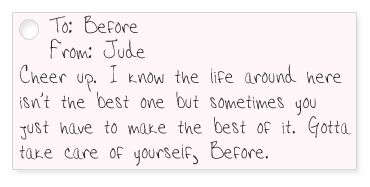 To: Before
From: Jude
Cheer up. I know the life around here
isn't the best one but sometimes you
just have to make the best of it. Gotta
take care of yourself, Before.